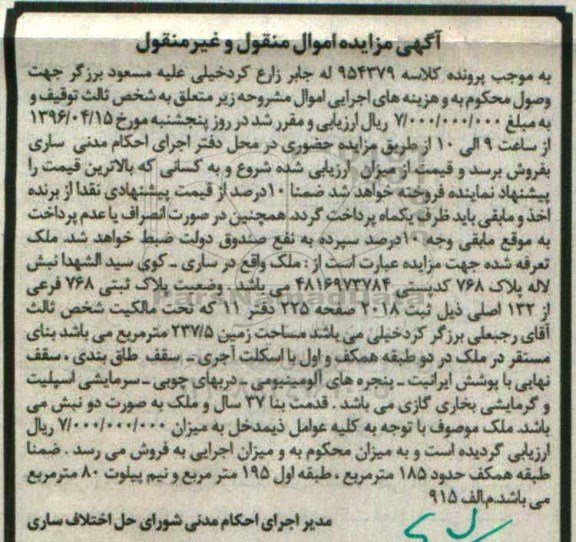 آگهی مزایده اموال منقول و غیر منقول
به موجب پرونده کلاسه ۹۵۴۳۷۹ له جابر زارع کردخیلی علیه مسعود برزگر جهت
وصول محکوم به و هزینه های اجرایی اموال مشروحه زیر متعلق به شخص ثالث توقیف و
به مبلغ ۷/۰۰۰/۰۰۰/۰۰۰ ریال ارزیابی و مقرر شد در روز پنجشنبه مورخ ۱۳۹۶/۰۴/۱۵
از ساعت ۹ الی ۱۰ از طریق مزایده حضوری در محل دفتر اجرای احکام مدنی ساری
بفروش برسد و قیمت از میزان ارزیابی شده شروع و به کسانی که بالاترین قیمت را
پیشنهاد نماینده فروخته خواهد شد ضمنا ۱۰درصد از قیمت پیشنهادی نقدا از برنده
اخذ و مابقی باید ظرف یکماه پرداخت گردد. همچنین در صورت انصراف یا عدم پرداخت
به موقع مابقی وجه ۱۰درصد سپرده به نفع صندوق دولت ضبط خواهد شد. ملک
تعرفه شده جهت مزایده عبارت است از : ملک واقع در ساری ـ کوی سید الشهدا نبش
لاله پلاک ۷۶۸ کدپستی ۴۸۱۶۹۷۳۷۸۴ می باشد . وضعیت پلاک ثبتی ۷۶۸ فرعی
از ۱۳۲ اصلی ذیل ثبت ۲۰۱۸ صفحه ۲۲۵ دفتر ۱۱ که تحت مالکیت شخص ثالث
آقای رجبعلی برزگر کردخیلی می باشد مساحت زمین ۲۳۷/۵ مترمربع می باشد بنای
مستقر در ملک در دو طبقه همکف و اول با اسکلت آجری ـ سقف طاق بندی ، سقف
نهایی با پوشش ایرانیت ـ پنجره های آلومینیومی ـ دربهای چوبی ـ سرمایشی اسپلیت
و گرمایشی بخاری گازی می باشد . قدمت بنا ۳۷ سال و ملک به صورت دو نبش می
باشد. ملک موصوف با توجه به کلیه عوامل ذیمدخل به میزان ۷/۰۰۰/۰۰۰/۰۰۰ ریال
ارزیابی گردیده است و به میزان محکوم به و میزان اجرایی به فروش می رسد . ضمنا
طبقه همکف حدود ۱۸۵ مترمربع ، طبقه اول ۱۹۵ متر مربع و نیم پیلوت ۸۰ مترمربع
می باشد.م.الف ۹۱۵
مدیر اجرای احکام مدنی شورای حل اختلاف ساری